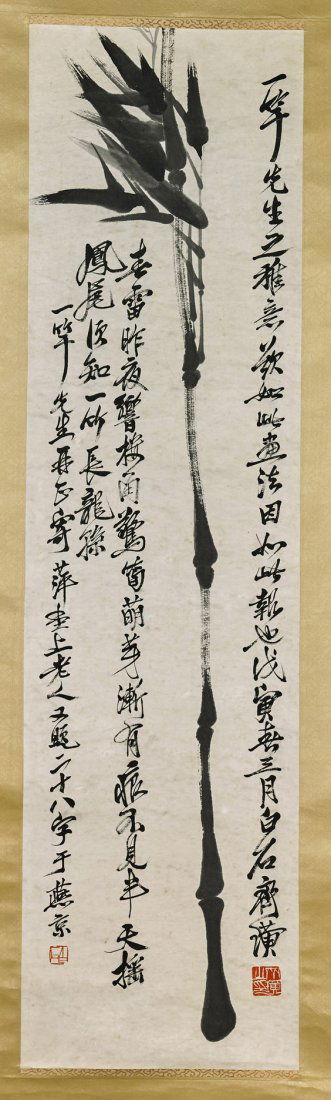 一竿先生之雅意欲如此画法因如此报也戊寅春三月白石齐璜
春雷昨夜響楼角驚筍萌芽漸有痕不見半天搖
鳳尾須知一竹長龍孫
一竿先生再正寄萍堂上老人又題二十八字于燕京